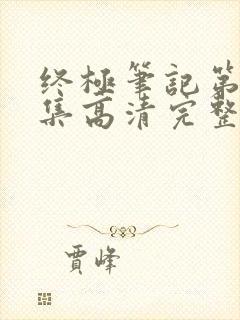 终极筆記第
集高清完整
賈峰